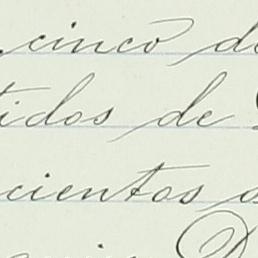 cinco de
tidos de
cientos